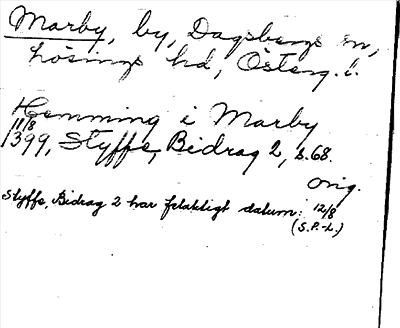 Marby, by, Dagsbergs sn,
Lösings hd, Österg. l.
Hemming i Marby
11/8
1399, Styffe, Bidrag 2, s. 68.
orig.
Styffe, Bidrag 2 har felaktigt datum: 12/8
(S.P.-L.)